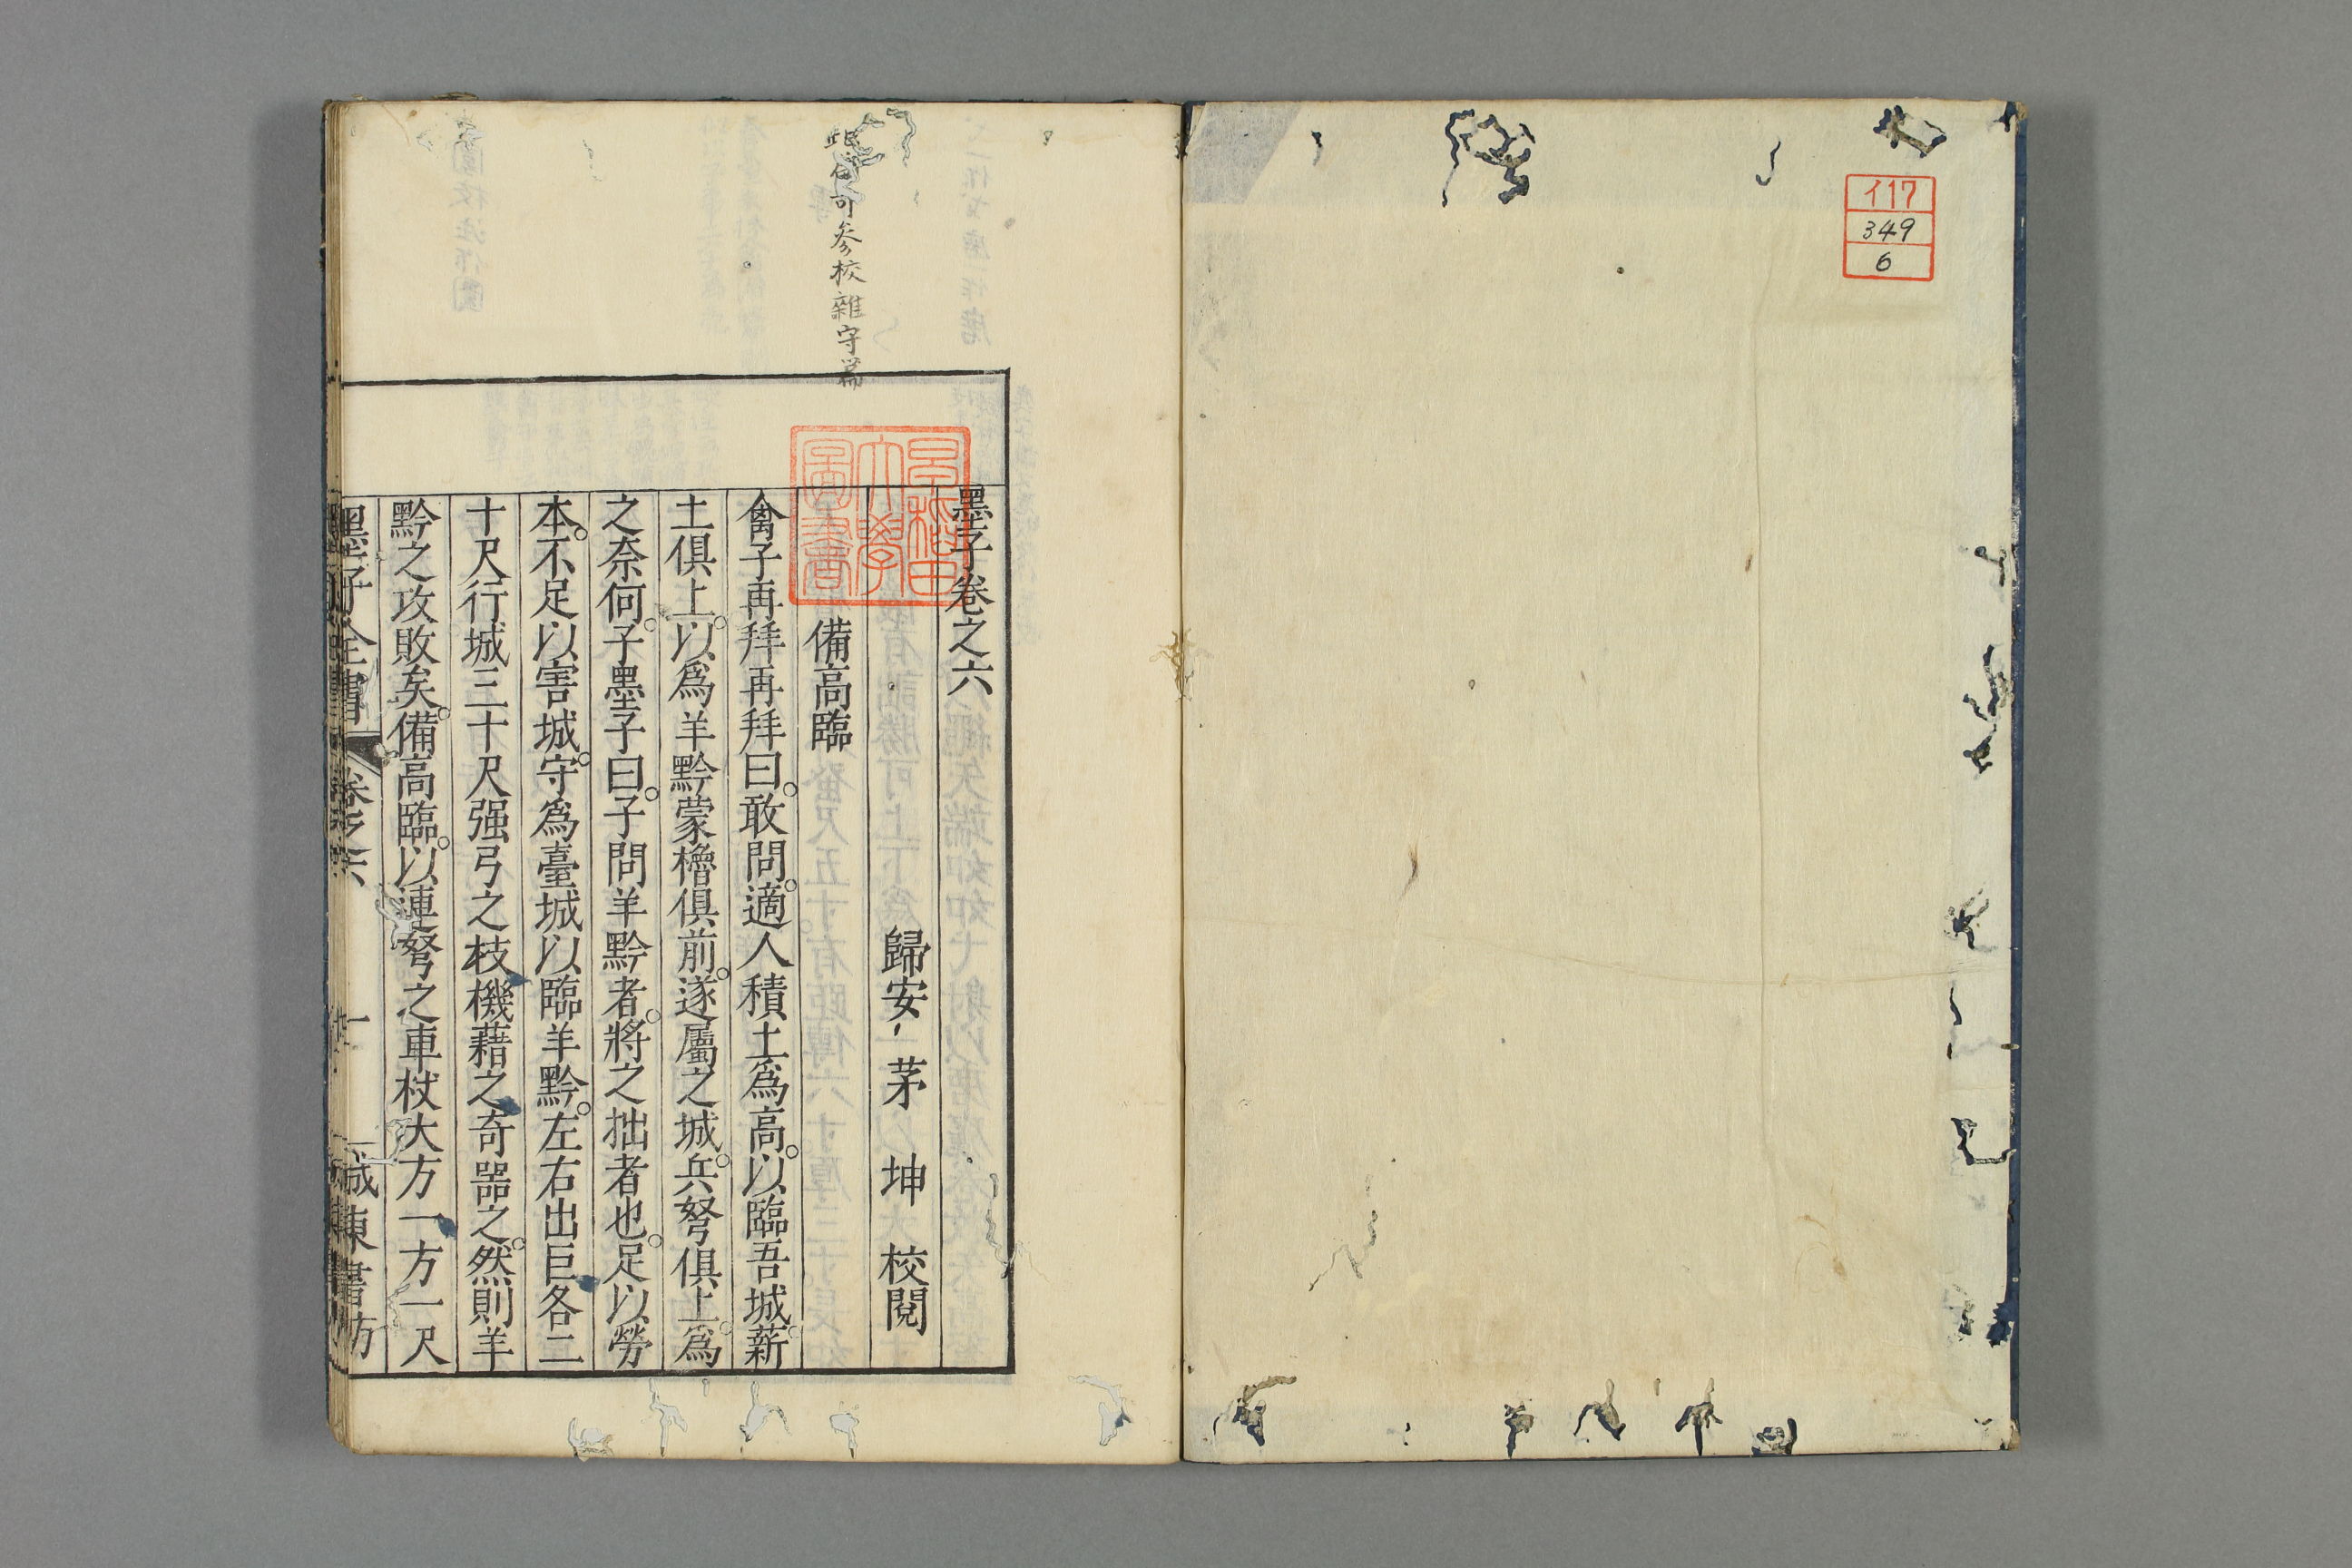 イ17
349
6
此句可参校雜守篇
早稻田大學圖書
墨子卷之六
歸安茅坤校閱
備高臨
禽子再拜再拜曰。敢問。適人積土爲高。以臨吾城。薪
土俱上。以爲羊黔蒙櫓俱前。遂屬之城。兵弩俱上。爲
之奈何。子墨子曰。子問羊黔者。將之拙者也。足以勞
本。不足以害城。守爲臺城以臨羊黔。左右出巨各二
十尺行城三十尺强弓之枝機藉之奇噐之。然則羊
黔之攻敗矣。備高臨。以連弩之車杖大方一方一尺
墨子全書 卷之六 一